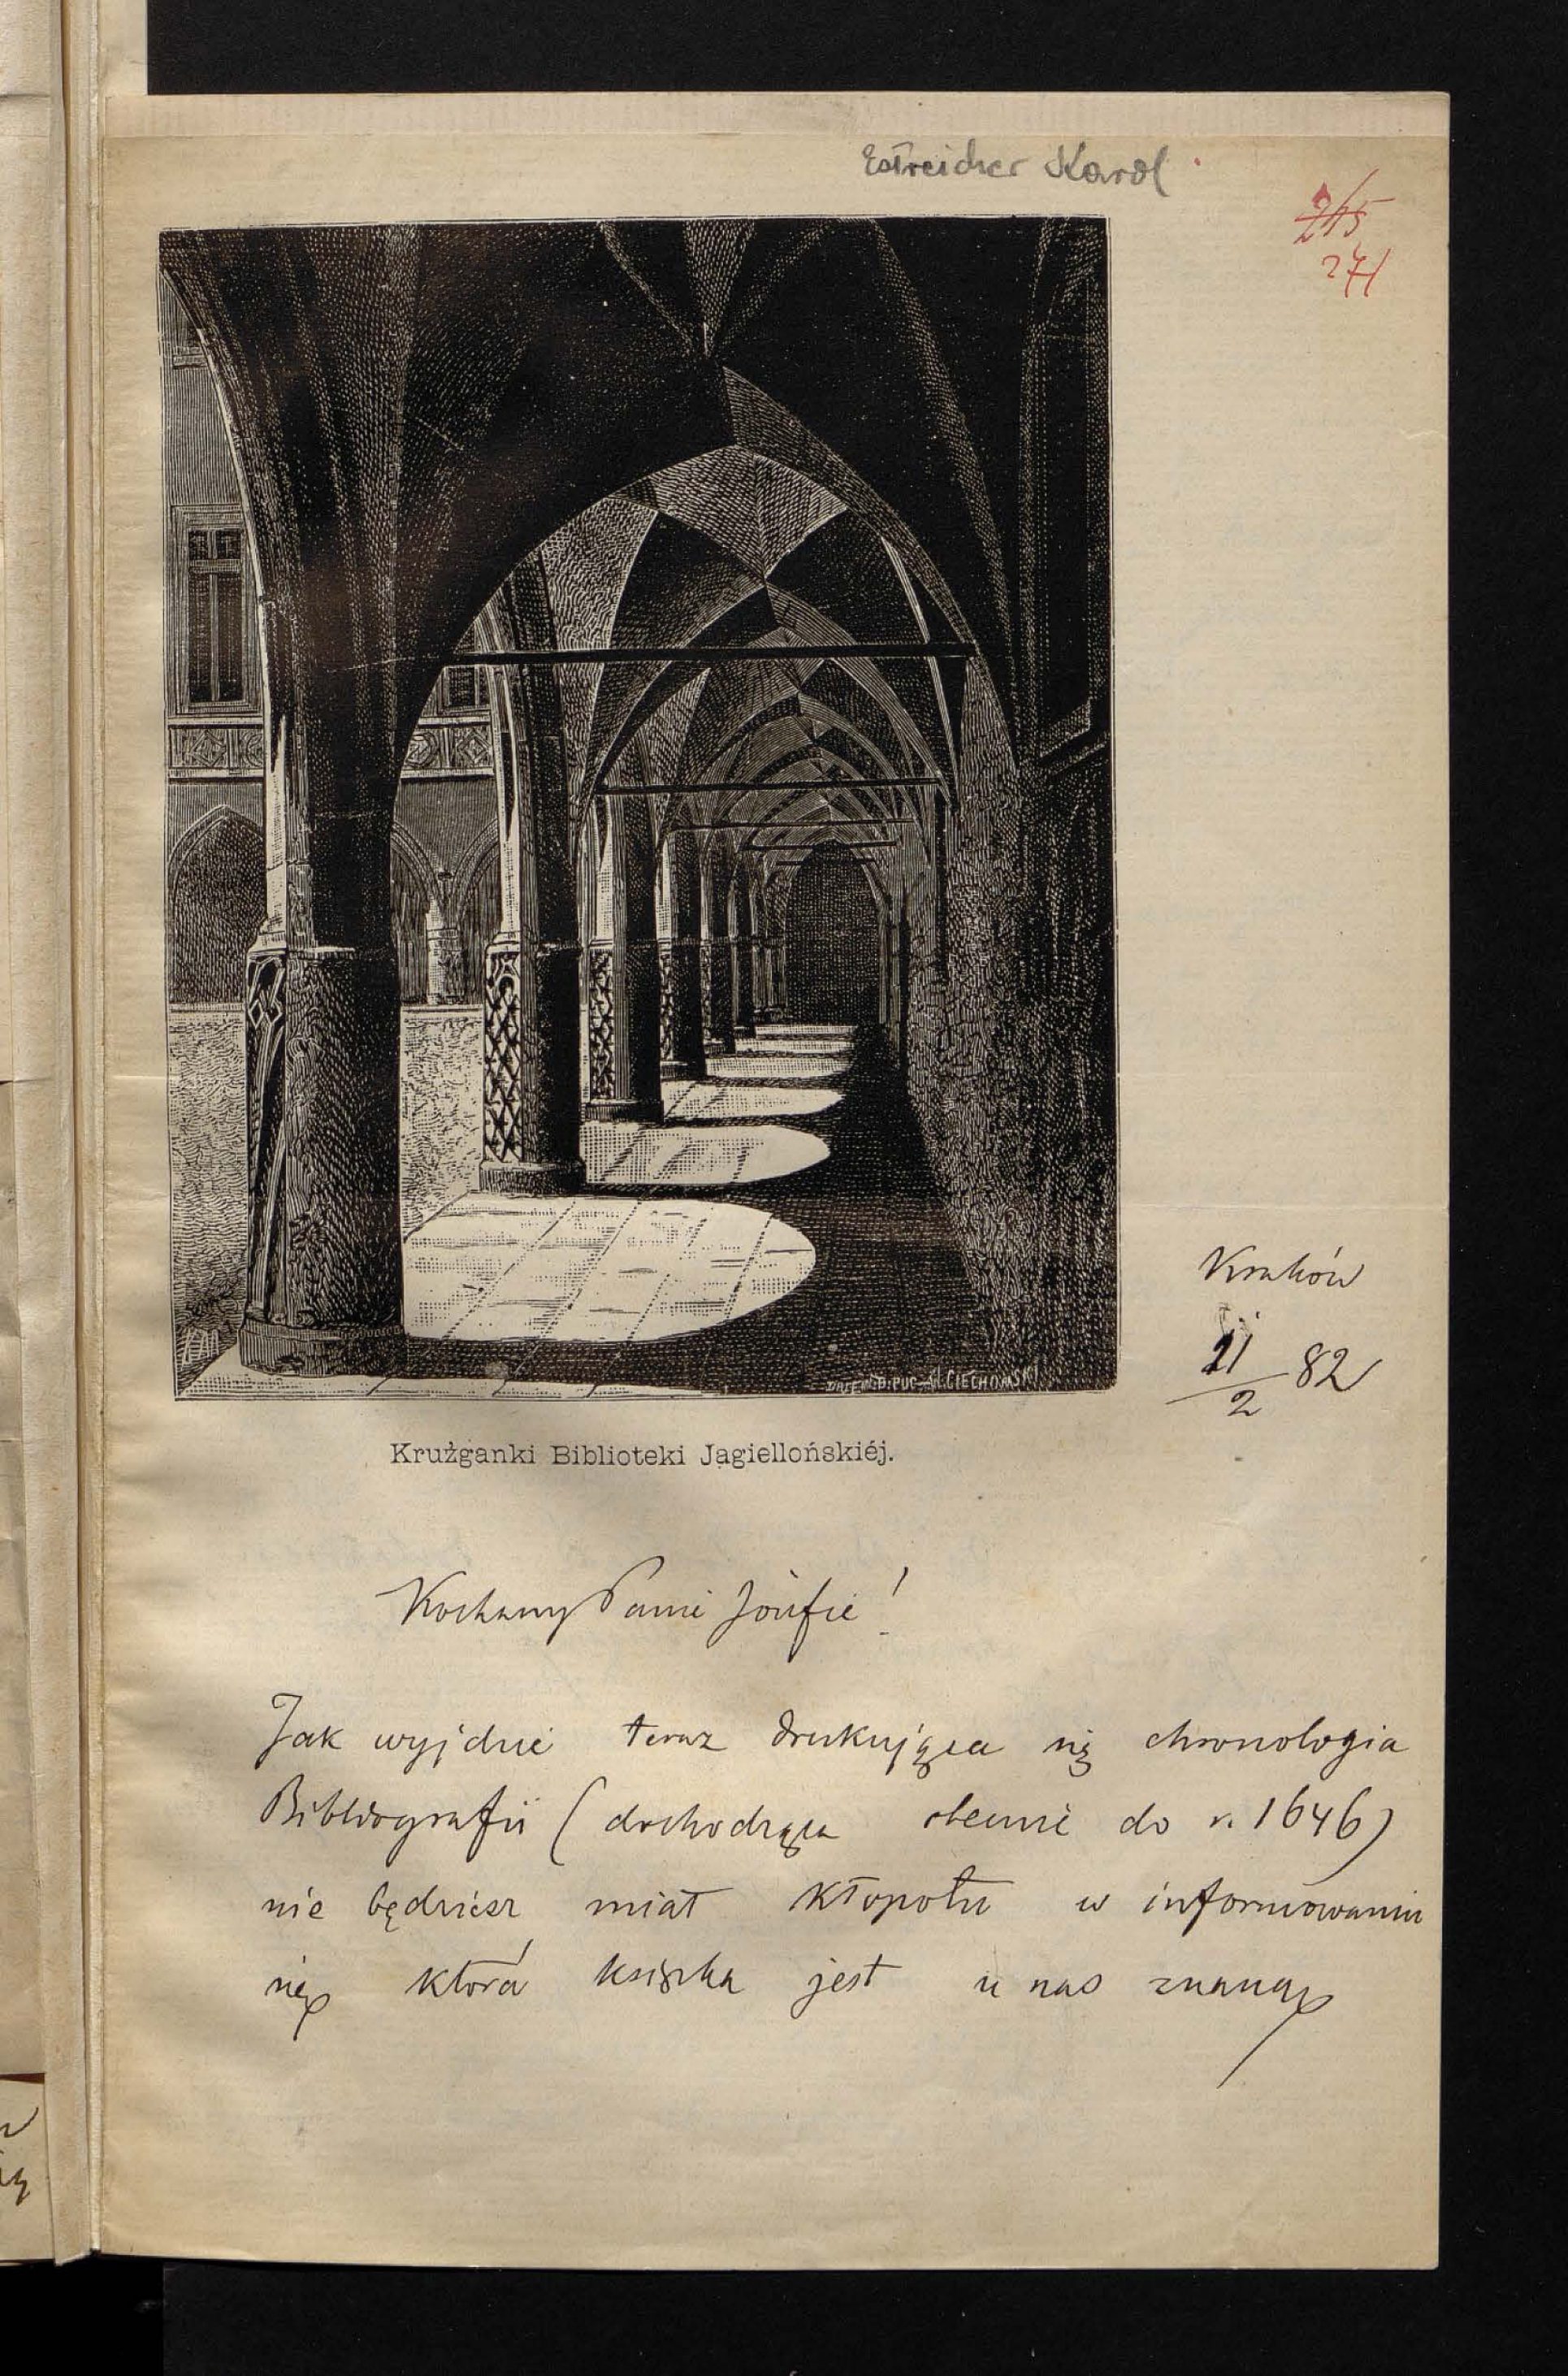 Estreicher Karol
215
271
Kraków
11/2 82
CIECHOMSKI
Krużganki Biblioteki Jagiellońskiéj.
Kochany Panie Józefie!
Jak wyjdzie teraz drukująca się chronologia
Bibliografii (dochodząca obecnie do r. 1646)
nie będziesz miał kłopotu w informowaniu
się, która książka jest u nas znaną,